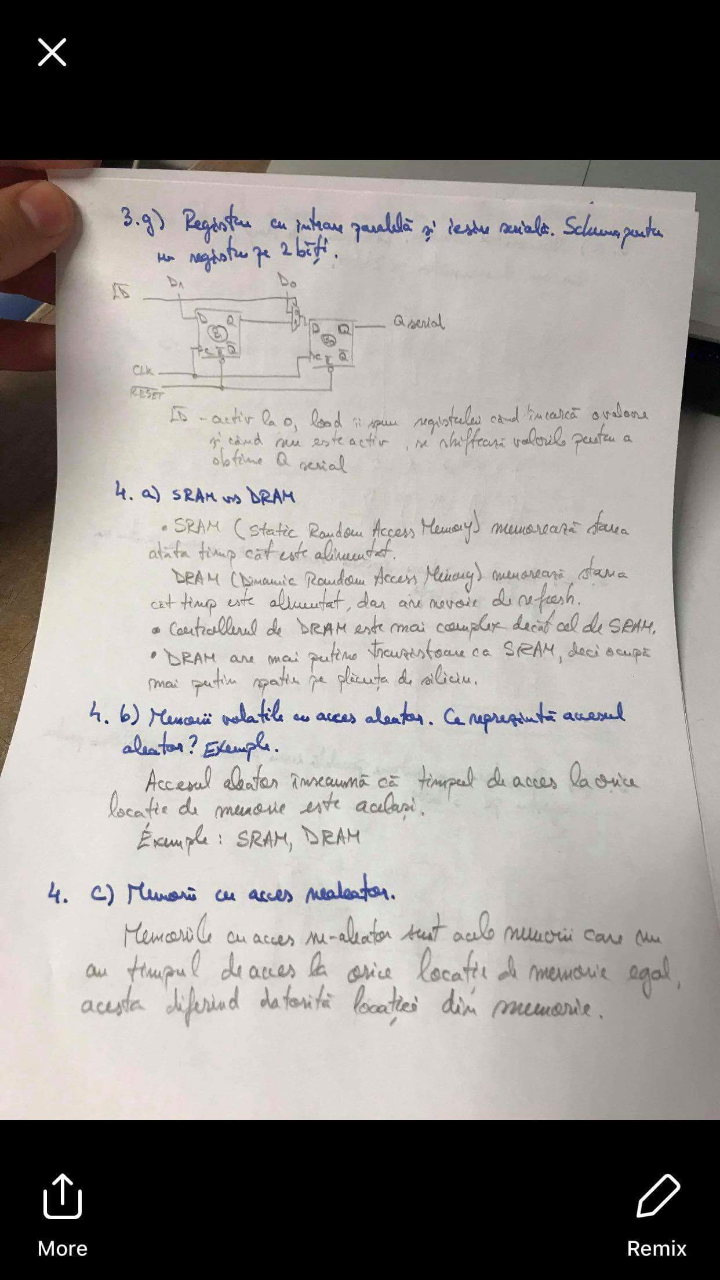 3.g) Registru cu intrare paralelă și iesire serială. Schema pentru
un registru pe 2 biți.
LD D1 D0
D Q D Q Q serial
C R Q̅ C R Q̅
CLK
RESET
LD - activ la 0, load îi spune registrului când încarcă o valoare
și când nu este activ, se shiftează valorile pentru a
obtine Q serial
4. a) SRAM vs DRAM
• SRAM (Static Random Access Memory) memorează starea
atâta timp cât este alimentat.
DRAM (Dinamic Random Access Memory) memorează starea
cât timp este alimentat, dar are nevoie de refresh.
• Controllerul de DRAM este mai complex decât cel de SRAM.
• DRAM are mai putine tranzistoare ca SRAM, deci ocupă
mai putin spatiu pe plăcuța de siliciu.
4. b) Memorii volatile cu acces aleator. Ce reprezintă accesul
aleator? Exemple.
Accesul aleator înseamnă că timpul de acces la orice
locatie de memorie este același.
Exemple: SRAM, DRAM
4. c) Memorii cu acces nealeator.
Memoriile cu acces ne-aleator sunt acele memorii care nu
au timpul de acces la orice locație de memorie egal,
acesta diferind datorită locației din memorie.
More Remix